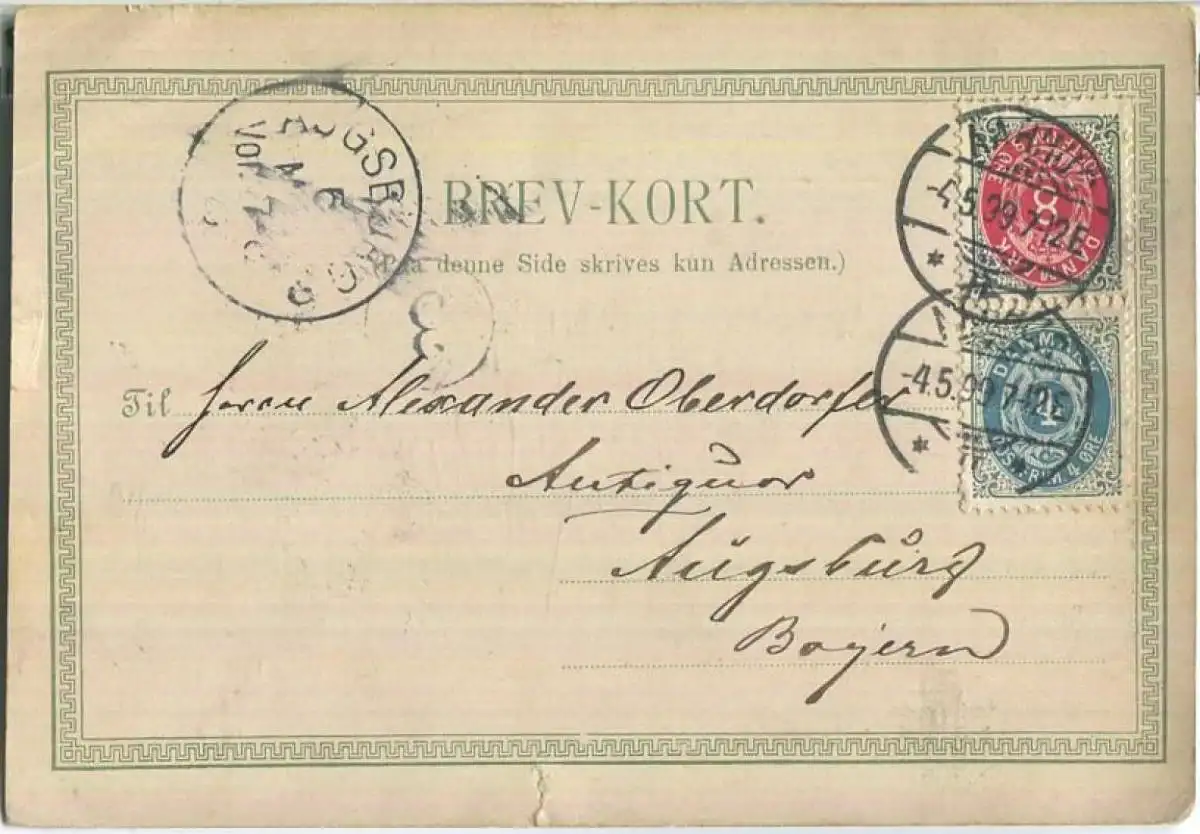 AUGSBURG
BREV-KORT.
(Paa denne Side skrives kun Adressen.)
8
DANMARK
-4.5.99.7-12E
DANMARK
4
POSTFRIM 4 ØRE
-4.5.99.7-12E
Til Herrn Alexander Oberdorfer
Antiquar
Augsburg
Bayern